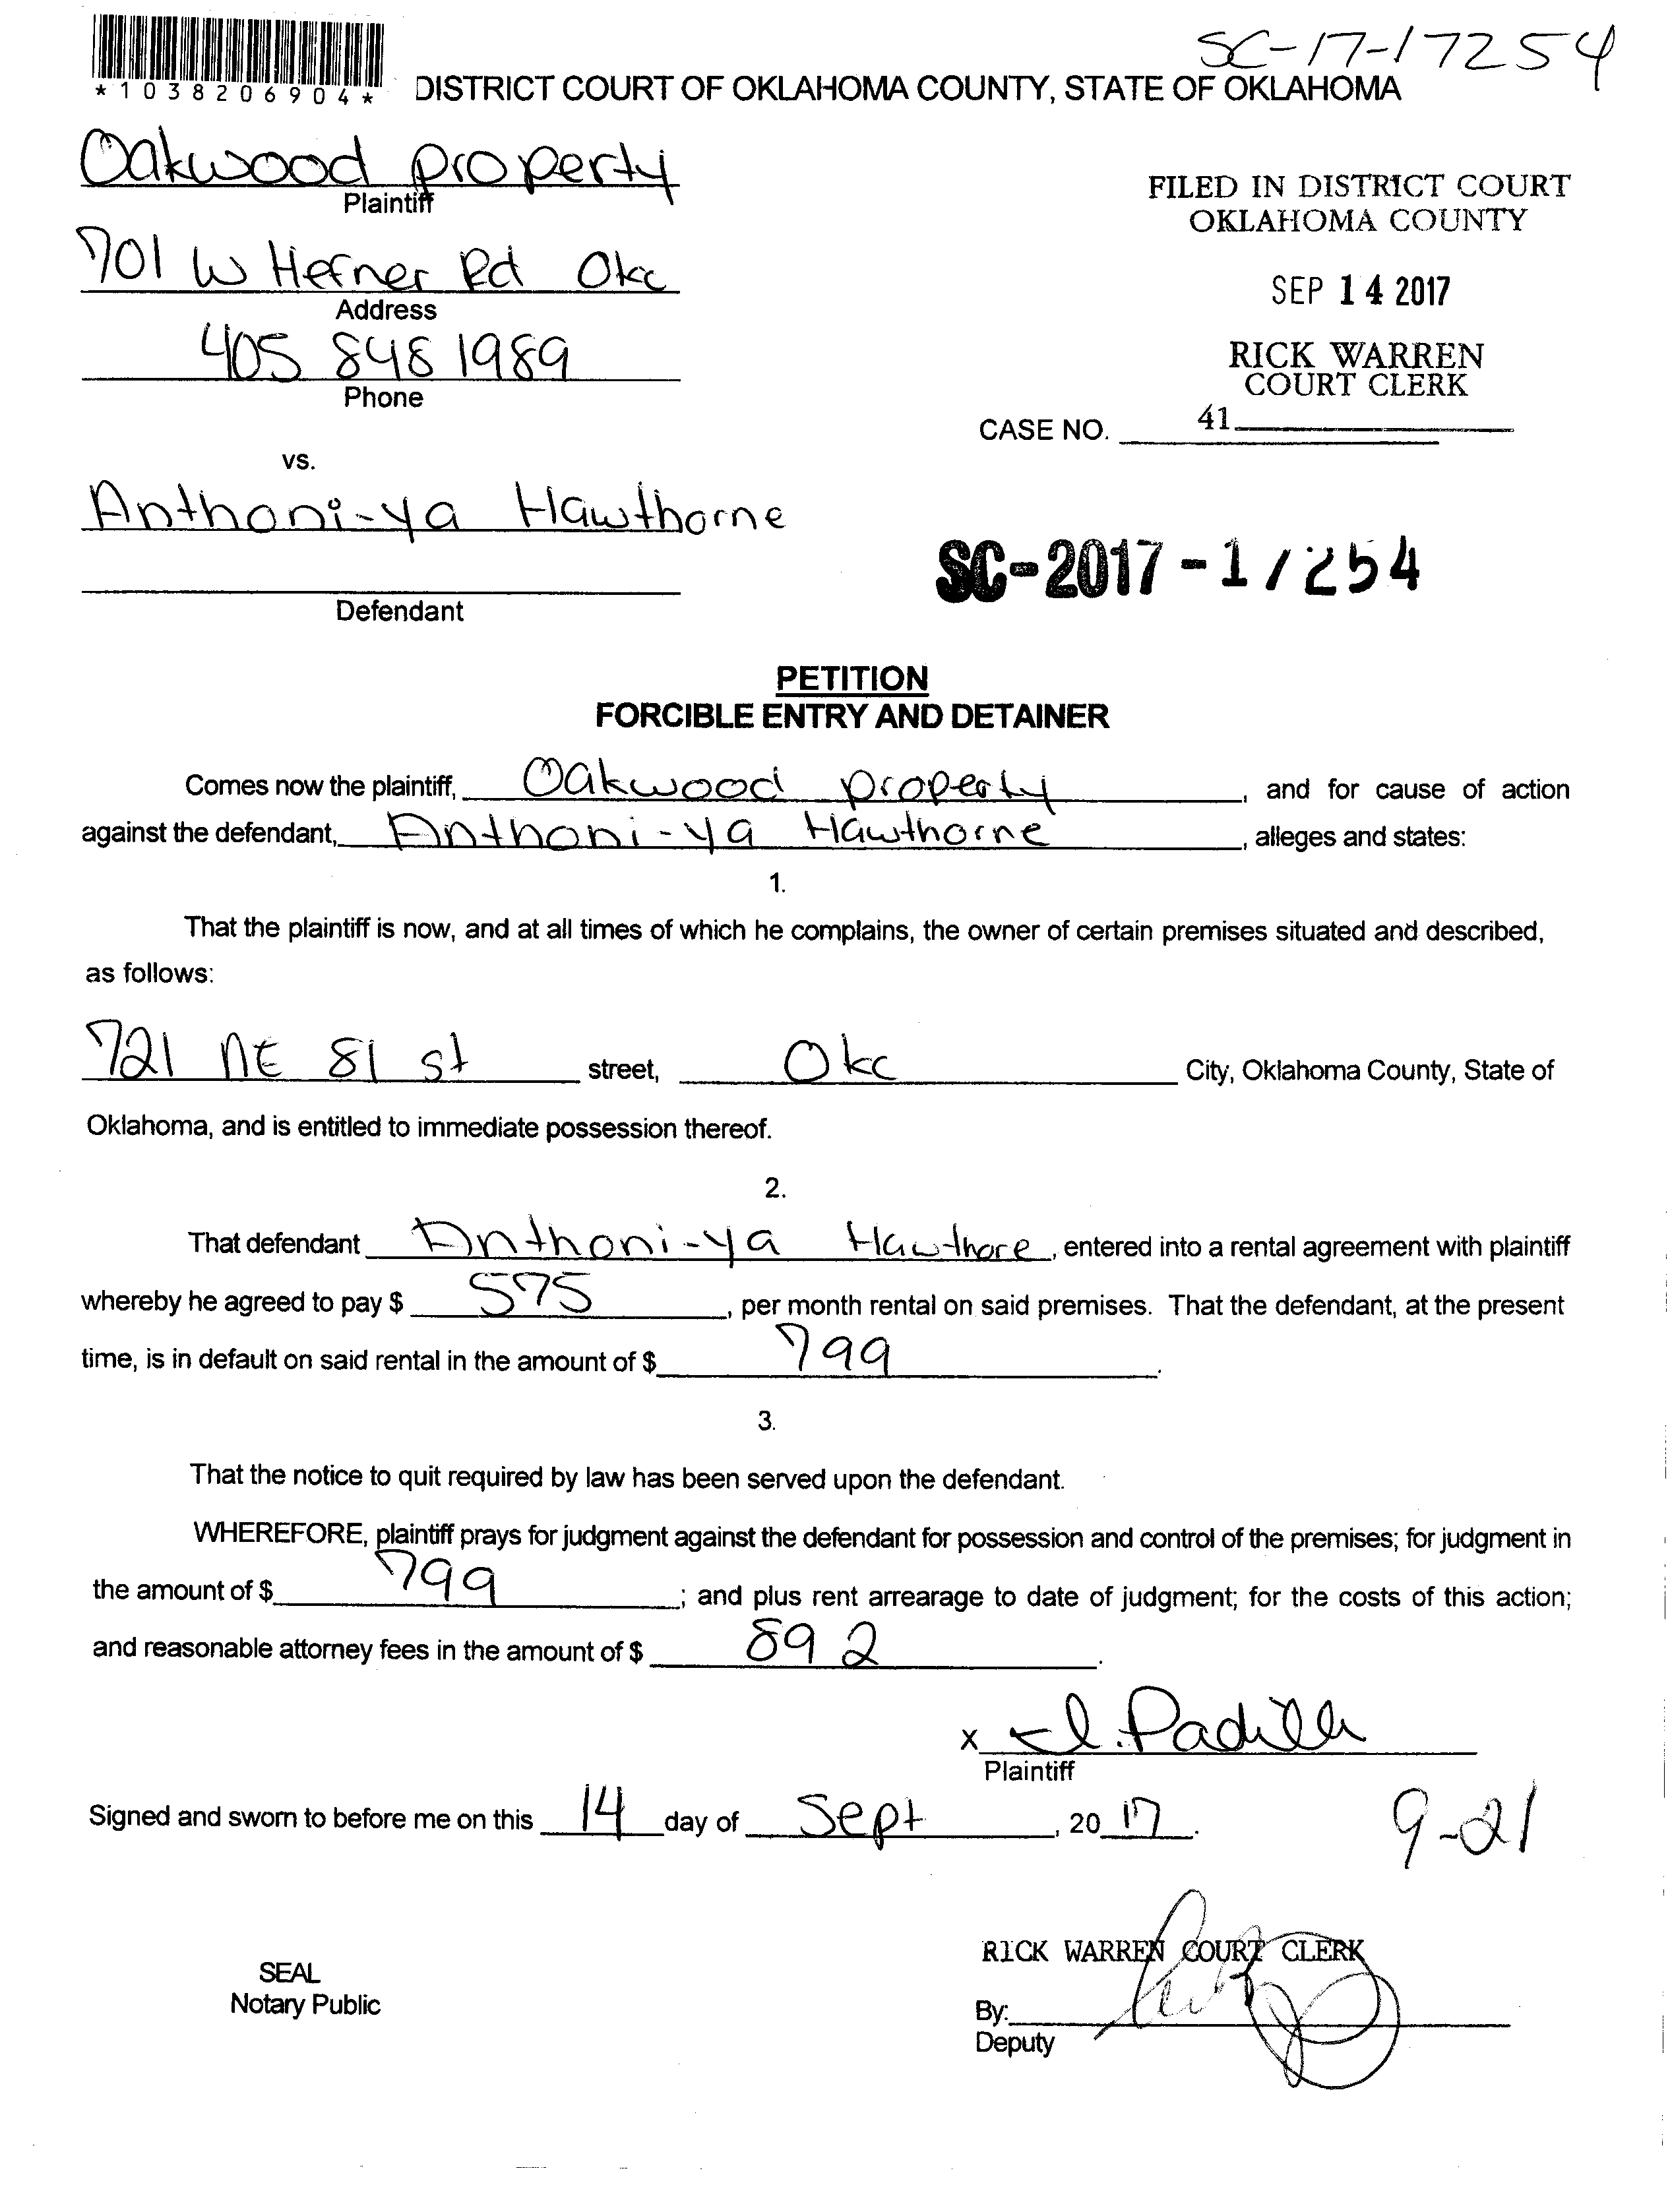 SC-17-17254
*1038206904*
DISTRICT COURT OF OKLAHOMA COUNTY, STATE OF OKLAHOMA
Oakwood property
Plaintiff
FILED IN DISTRICT COURT
OKLAHOMA COUNTY
701 W Hefner Rd Okc
Address
SEP 14 2017
405 848 1989
Phone
RICK WARREN
COURT CLERK
CASE NO. 41
vs.
Anthoni-ya Hawthorne
SC-2017-17254
Defendant
PETITION
FORCIBLE ENTRY AND DETAINER
Comes now the plaintiff, Oakwood property, and for cause of action
against the defendant, Anthoni-ya Hawthorne, alleges and states:
1.
That the plaintiff is now, and at all times of which he complains, the owner of certain premises situated and described,
as follows:
721 NE 81 st street, Okc City, Oklahoma County, State of
Oklahoma, and is entitled to immediate possession thereof.
2.
That defendant Anthoni-ya Hawthore, entered into a rental agreement with plaintiff
whereby he agreed to pay $ 575, per month rental on said premises. That the defendant, at the present
time, is in default on said rental in the amount of $ 799.
3.
That the notice to quit required by law has been served upon the defendant.
WHEREFORE, plaintiff prays for judgment against the defendant for possession and control of the premises; for judgment in
the amount of $ 799; and plus rent arrearage to date of judgment; for the costs of this action;
and reasonable attorney fees in the amount of $ 892.
X I. Padilla
Plaintiff
Signed and sworn to before me on this 14 day of Sept, 20 17.
9-21
RICK WARREN COURT CLERK
SEAL
Notary Public
By:
Deputy